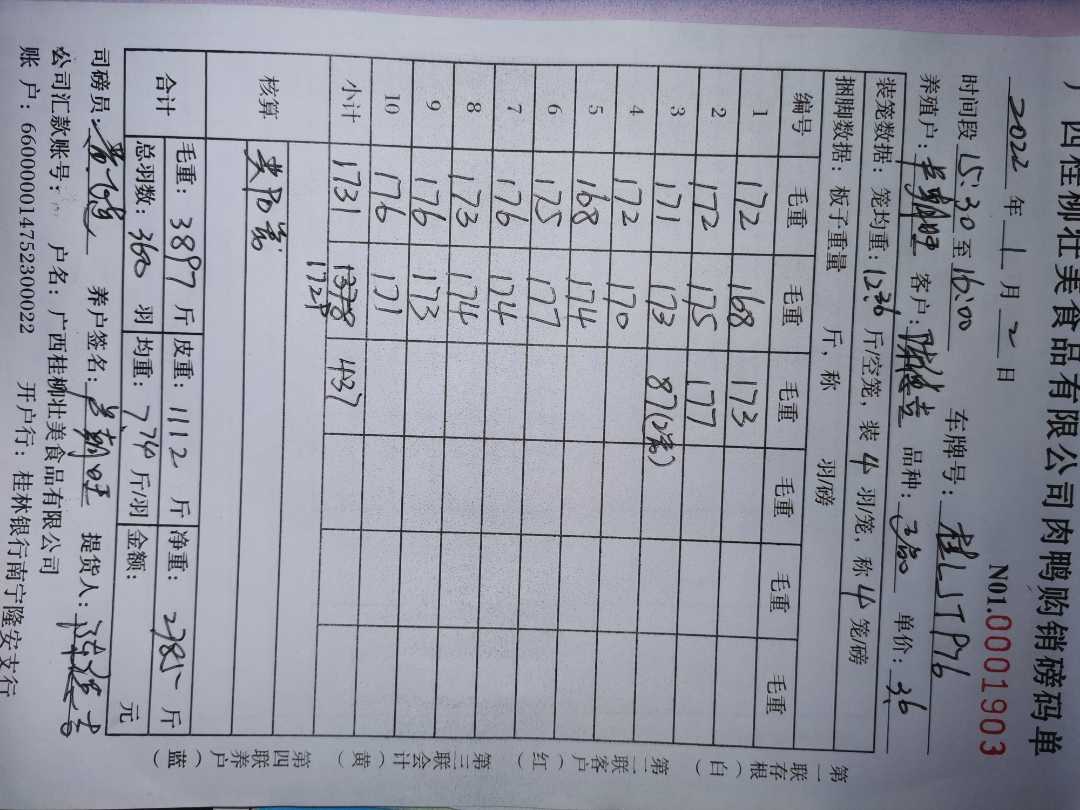 广西桂柳壮美食品有限公司肉鸭购销磅码单
N01.0001903
2022 年 1 月 2 日
时间段 15:30 至 16:00 车牌号: 桂LJTP76
养殖户: 客户: 品种: 单价: 3.6
装笼数据: 笼均重: 12.36 斤/空笼, 装 4 羽/笼, 称 4 笼/磅
捆脚数据: 板子重量 斤, 称 羽/磅
编号 毛重 毛重 毛重 毛重 毛重 毛重
1 172 168 173
2 172 175 177
3 171 173 87(2笼)
4 172 170
5 168 174
6 175 177
7 176 174
8 173 174
9 176 173
10 176 171
小计 1731 1378 437
1729
核算
合计 毛重: 3897 斤 皮重: 1112 斤 净重: 2785 斤
总羽数: 360 羽 均重: 7.74 斤/羽 金额: 元
司磅员: 养户签名: 提货人:
公司汇款账号: 户名: 广西桂柳壮美食品有限公司
账户: 660000014752300022 开户行: 桂林银行南宁隆安支行
第一联存根(白)
第二联客户(红)
第三联会计(黄)
第四联养户(蓝)